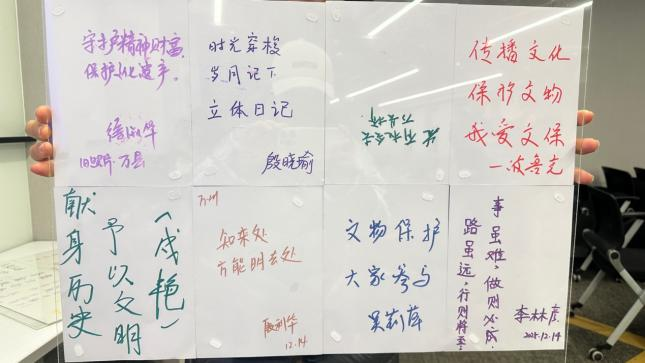 守护精神财富,
保护文化遗产。
时光穿梭
岁月记下
立体日记
殷晓瑜
传播文化
保护文物
我爱文保
献身历史
予以文明
(戍艳)
万州
知来处
方能明去处
12.14
文物保护
大家参与
吴莉萍
事虽难,做则必成
路虽远,行则将至
李林庆
12.14